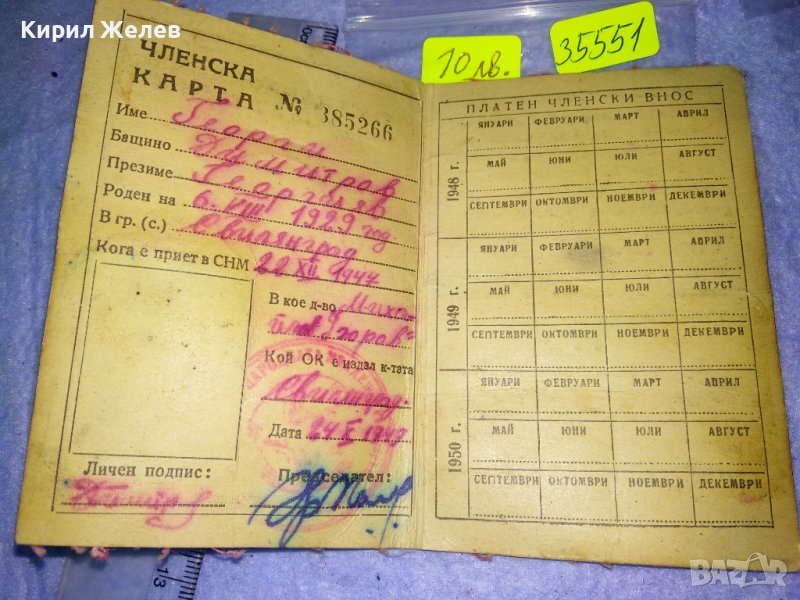 Кирил Желев
10 лв.
35551
ЧЛЕНСКА
КАРТА № 385266
Име Георги
Бащино Димитров
Презиме Георгиев
Роден на 6. VIII 1929 год
В гр. (с.) Свиленград
Кога е приет в СНМ 22 XII 1947
В кое д-во
Кой ОК е издал к-тата
Свиленград
Дата
Личен подпис:
Председател:
ПЛАТЕН ЧЛЕНСКИ ВНОС
1948 г.
ЯНУАРИ ФЕВРУАРИ МАРТ АПРИЛ
МАЙ ЮНИ ЮЛИ АВГУСТ
СЕПТЕМВРИ ОКТОМВРИ НОЕМВРИ ДЕКЕМВРИ
1949 г.
ЯНУАРИ ФЕВРУАРИ МАРТ АПРИЛ
МАЙ ЮНИ ЮЛИ АВГУСТ
СЕПТЕМВРИ ОКТОМВРИ НОЕМВРИ ДЕКЕМВРИ
1950 г.
ЯНУАРИ ФЕВРУАРИ МАРТ АПРИЛ
МАЙ ЮНИ ЮЛИ АВГУСТ
СЕПТЕМВРИ ОКТОМВРИ НОЕМВРИ ДЕКЕМВРИ
13
BAZAR